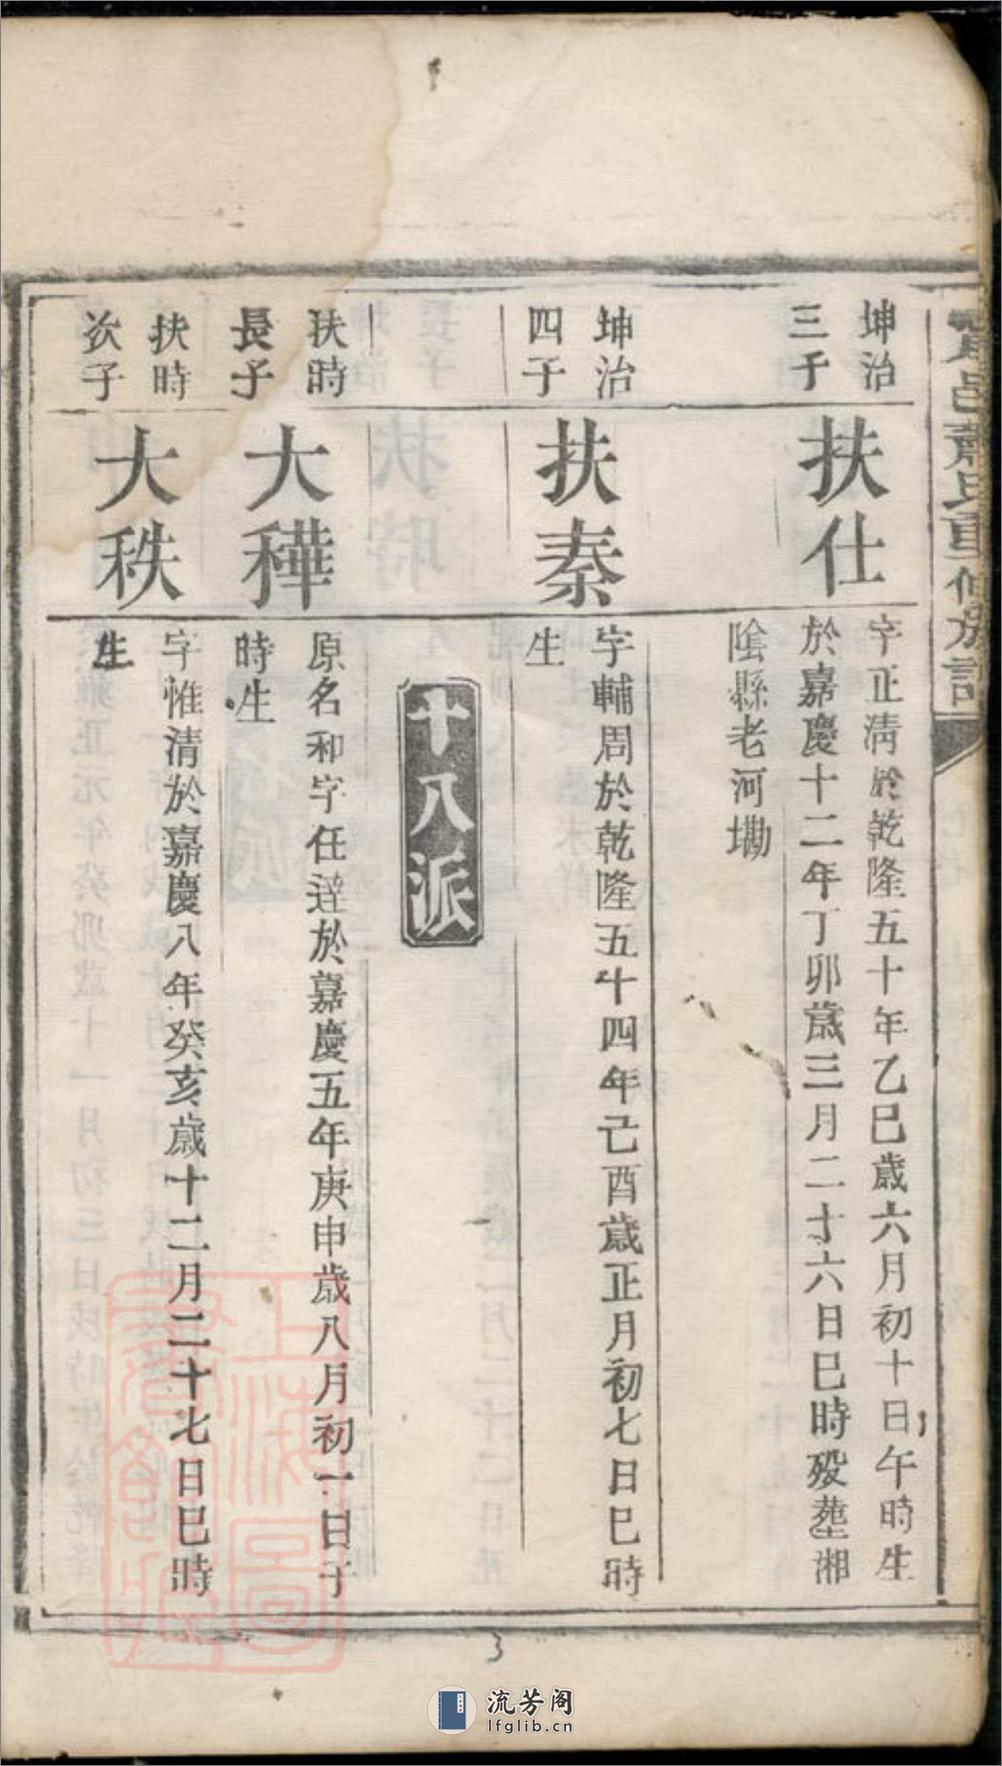 邑蕭氏重修族譜
坤治
三子
扶仕
字正清於乾隆五十年乙巳歲六月初十日午時生
於嘉慶十二年丁卯歲三月二十六日巳時歿塟湘
陰縣老河墈
坤治
四子
扶秦
字輔周於乾隆五十四年己酉歲正月初七日巳時
生
十八派
扶時
長子
大稺
原名和字任達於嘉慶五年庚申歲八月初一日子
時生
扶時
次子
大秩
字惟清於嘉慶八年癸亥歲十二月二十七日巳時
生
3
上海圖書館藏
流芳阁
lfglib.cn